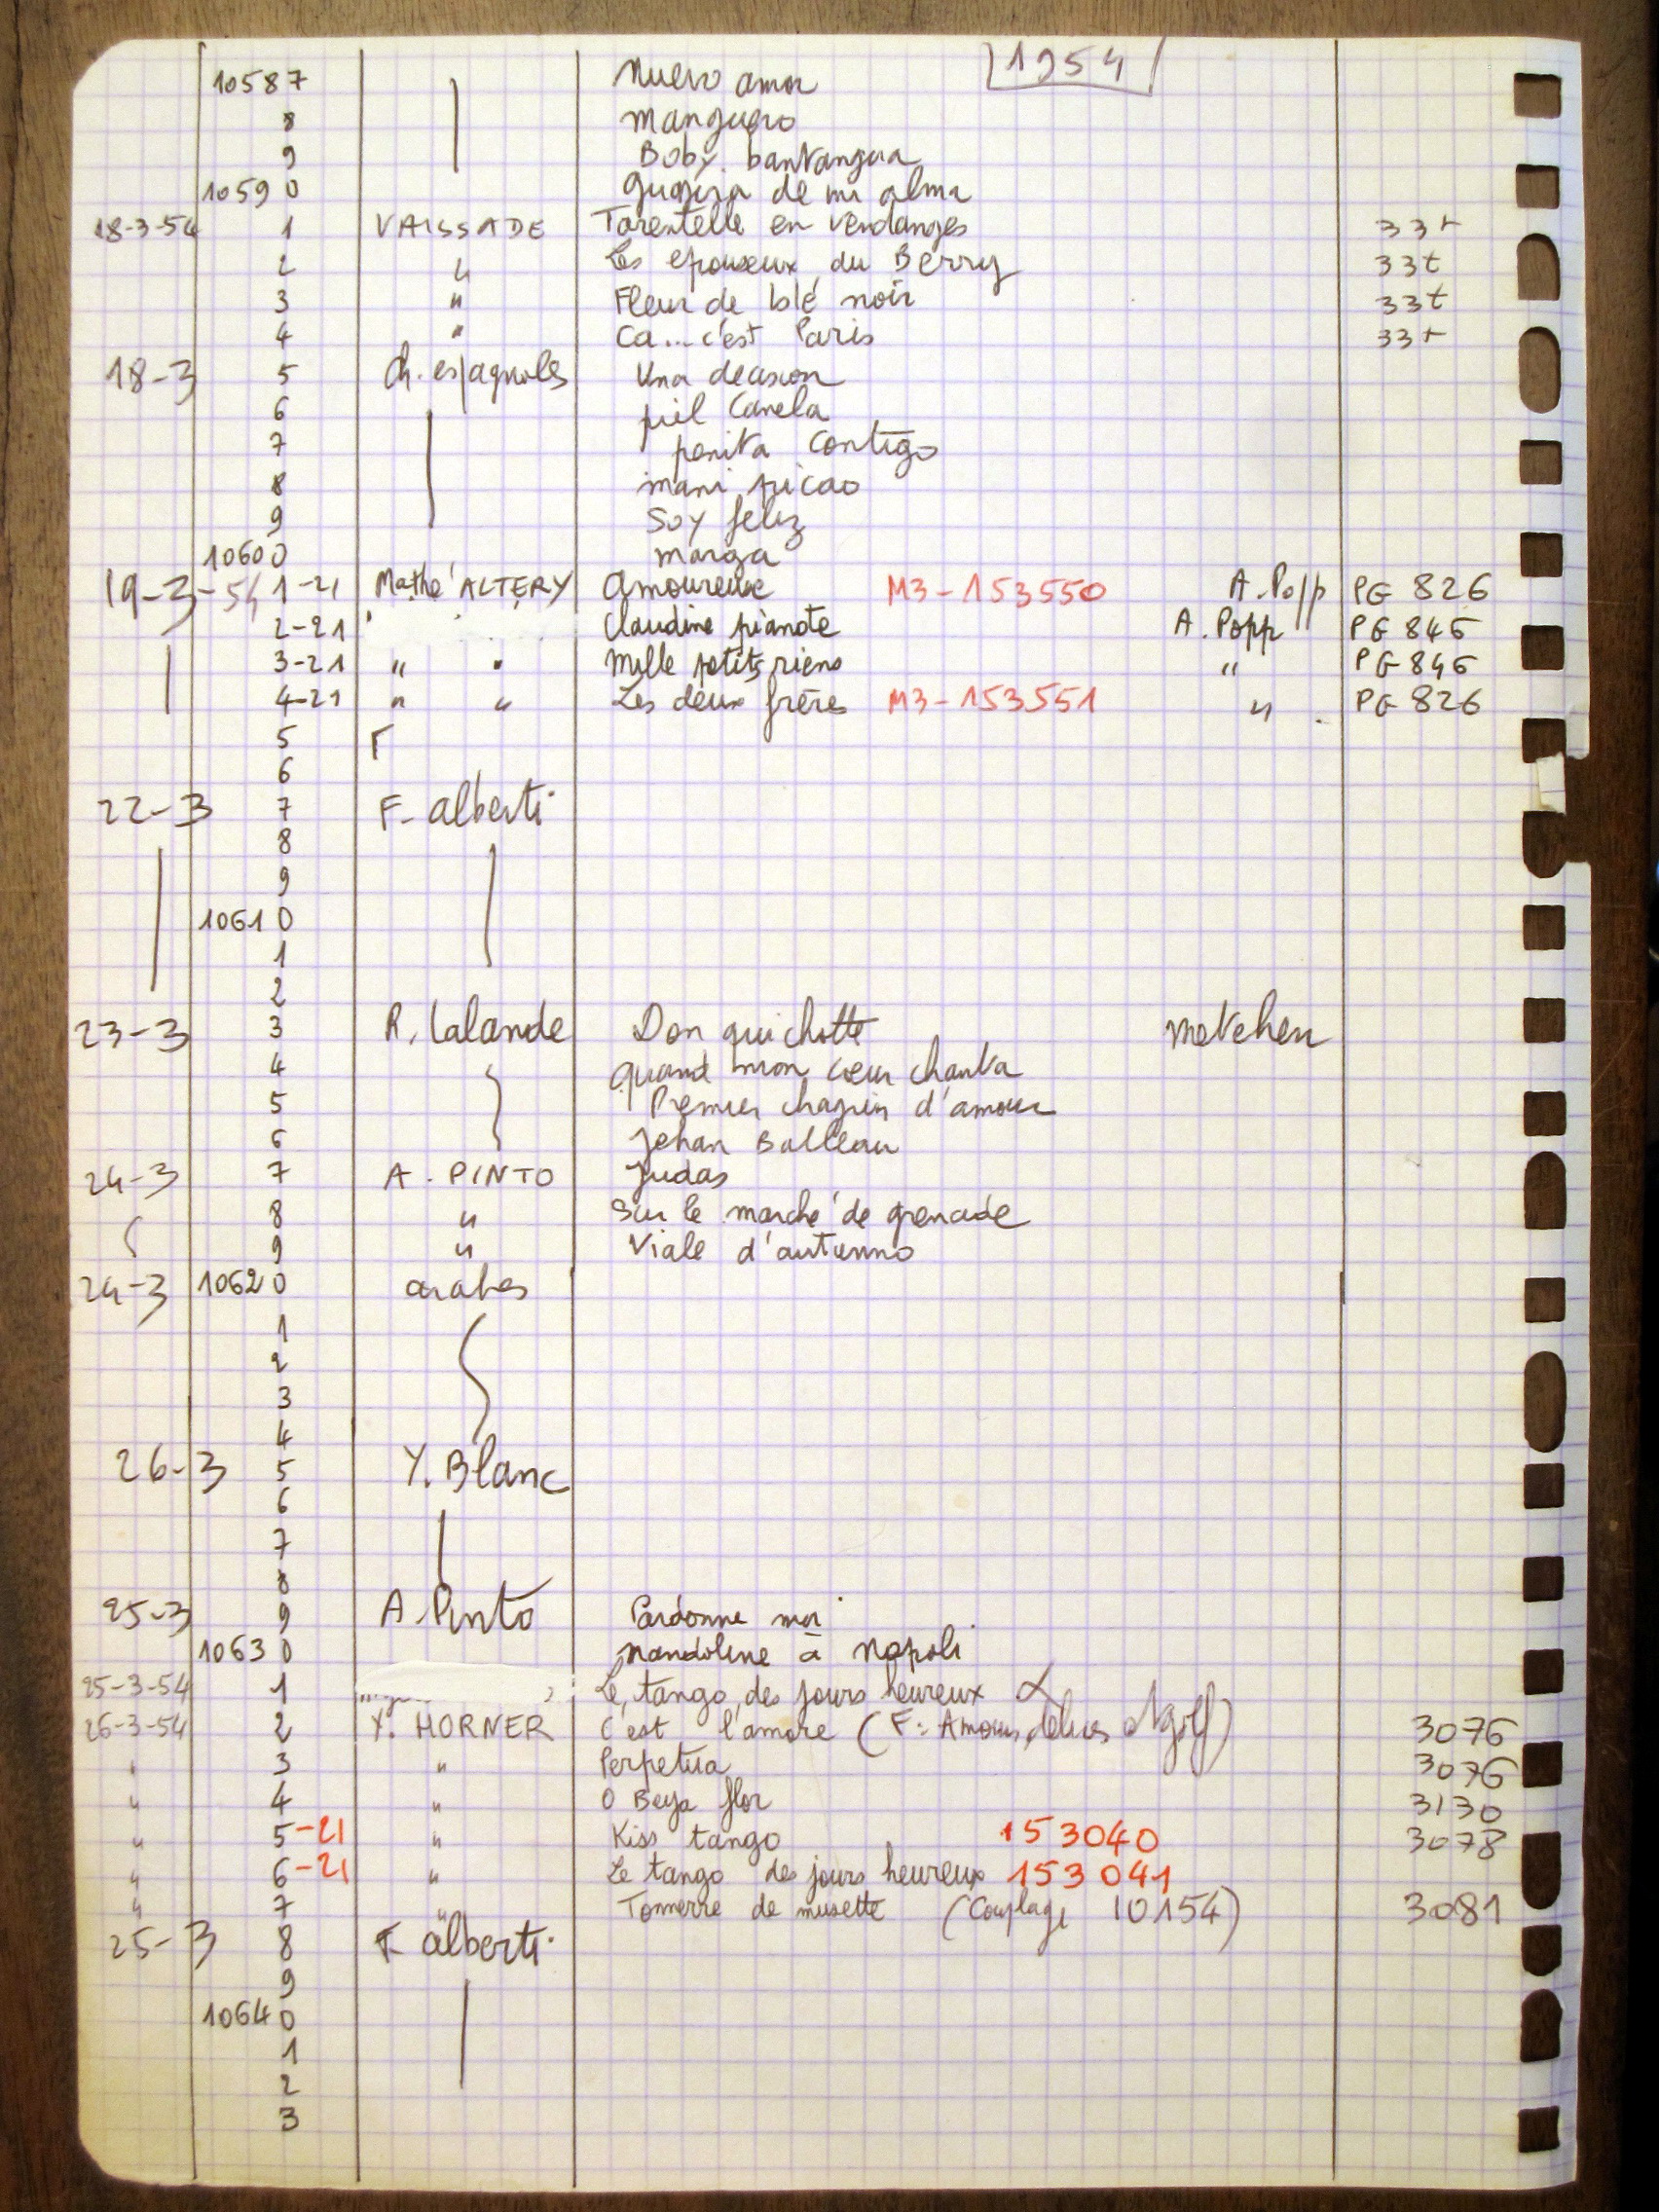 1954
10587 Nuevo amor
8 Manguero
9 Boby
10590 de mi alma
18-3-54 1 VAISSADE Tarentelle en vendanges 33t
2 " Les epouseux du Berry 33t
3 " Fleur de blé noir 33t
4 " Ca... c'est Paris 33t
18-3 5 Ch. espagnoles Una
6 piel Canela
7 penita Contigo
8 mani picao
9 Soy feliz
10600 marga
19-3-54 1-21 Mathé ALTERY Amoureuse M3-153550 A. Popp PG 826
2-21 " Claudine pianote A. Popp PG 846
3-21 " " Mille petits riens " PG 846
4-21 " " Les deux frère M3-153551 " PG 826
5 F
6
22-3 7 F. alberti
8
9
10610
1
2
23-3 3 R. Lalande Don quichotte Metehen
4 quand mon cœur chanta
5 Premier chagrin d'amour
6 Jehan
24-3 7 A. PINTO Judas
8 " Sur le marché de grenade
9 " Viale d'autunno
24-3 10620 arabes
1
2
3
4
26-3 5 Y. Blanc
6
7
8
25-3 9 A. Pinto Pardonne moi
10630 Mandoline à Napoli
25-3-54 1 Le tango des jours heureux
26-3-54 2 Y. HORNER C'est l'amore (F: 3076
" 3 " Perpetua 3076
" 4 " O Beija flor 3130
" 5-21 " Kiss tango 153040 3078
" 6-21 " Le tango des jours heureux 153041
" 7 " Tonnerre de musette (Couplage 10154) 3081
25-3 8 F. alberti
9
10640
1
2
3